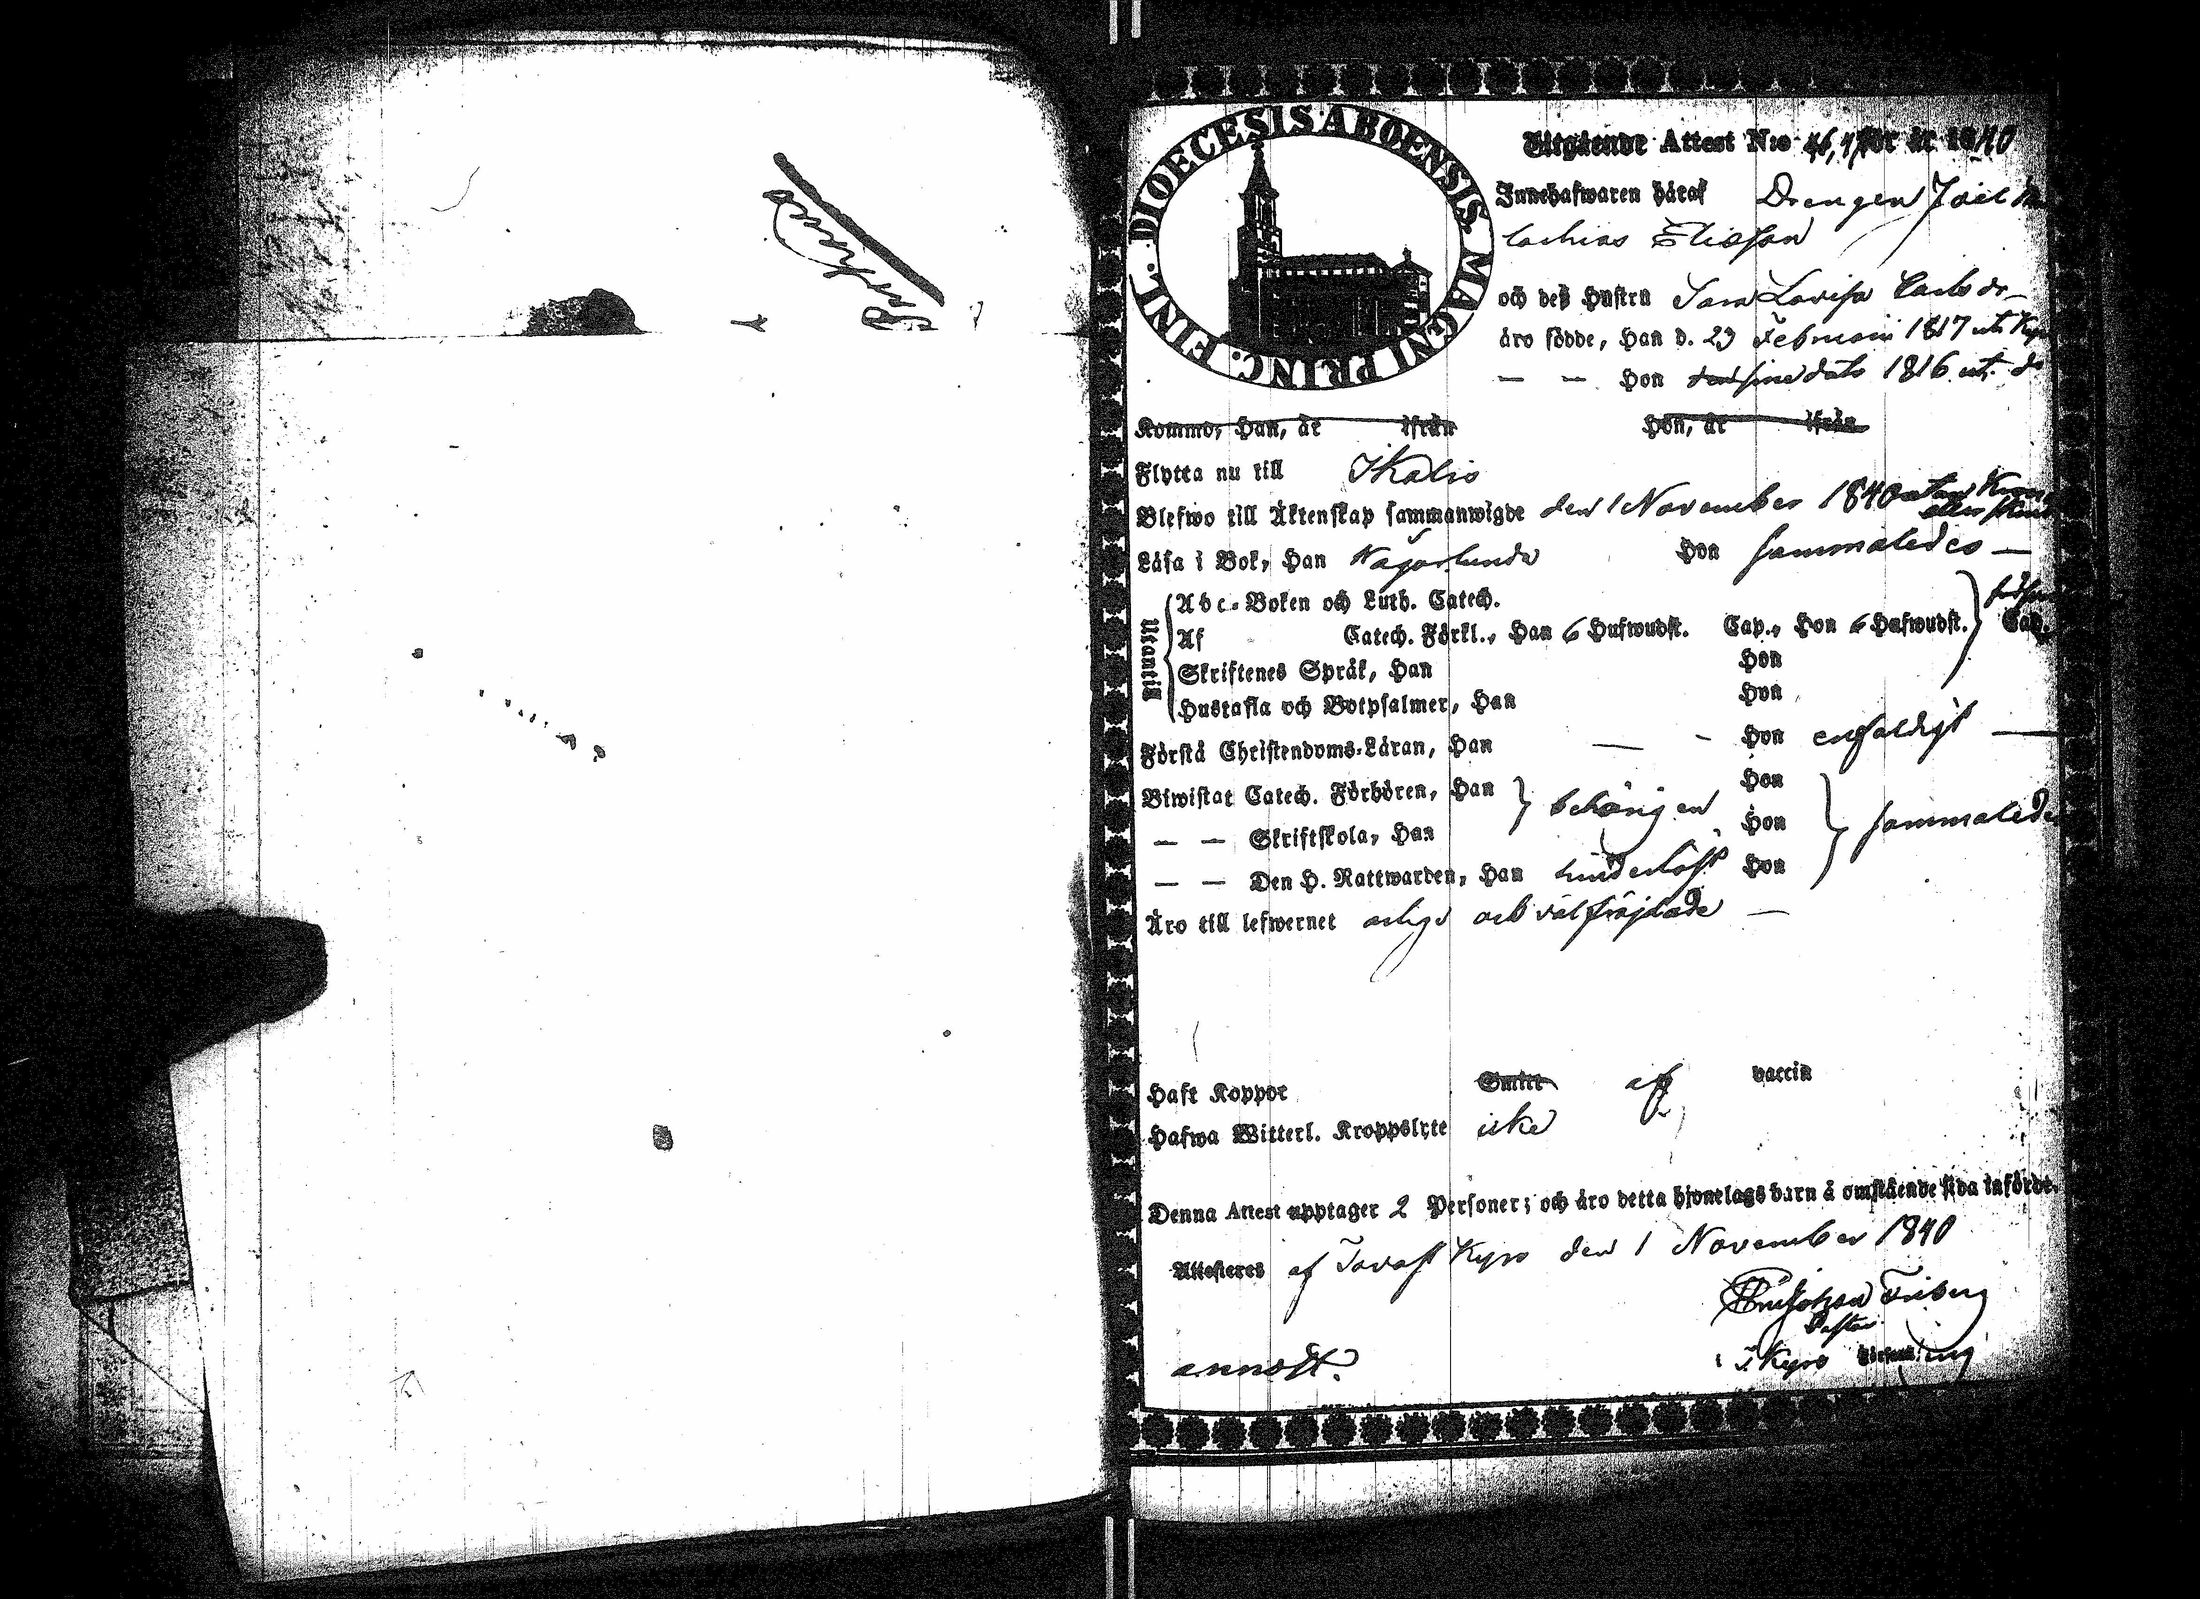 DIOECESIS ABOENSIS. MAGNI PRINC. FINL.
Utgående Attest N:o för år 1840
Innehafwaren häraf Drengen Joel
Eliasson
och des Hustru Sara Lovisa Carlsdr
äro födde, Han d. 23 Februarii 1817 uti
— — Hon sine dato 1816 uti do
Komme, Han, år ifrån Hon, år ifrån
Flytta nu till Ikalis
Blefwo till Äktenskap sammanwigde den 1 November 1840 utan
eller
Läsa i Bok, Han Någorlunda Hon sammaledes —
Utantill
Abc-Boken och Luth. Catech.
Af Catech. Förkl., Han 6 Hufwudst. Cap., Hon 6 Hufwudst. Cap.
Skriftenes Språk, Han Hon
Hustafla och Botpsalmer, Han Hon
Förstå Christendoms-Läran, Han — - Hon enfaldigt —
Biwistat Catech. Förhören, Han Hon
— — Skriftskola, Han behörigen Hon sammaledes
— — Den H. Nattwarden, Han hinderlöst Hon
Äro till lefwernet ärlige och välfräjdade —
Haft Koppor Smitt af vaccin
Hafwa Witterl. Kroppslyte icke
Denna Attest upptager 2 Personer; och äro detta hjonelags barn å omstående sida införde.
Attesteres af Tavast Kyro den 1 November 1840
Friberg
Pastor
Kyro